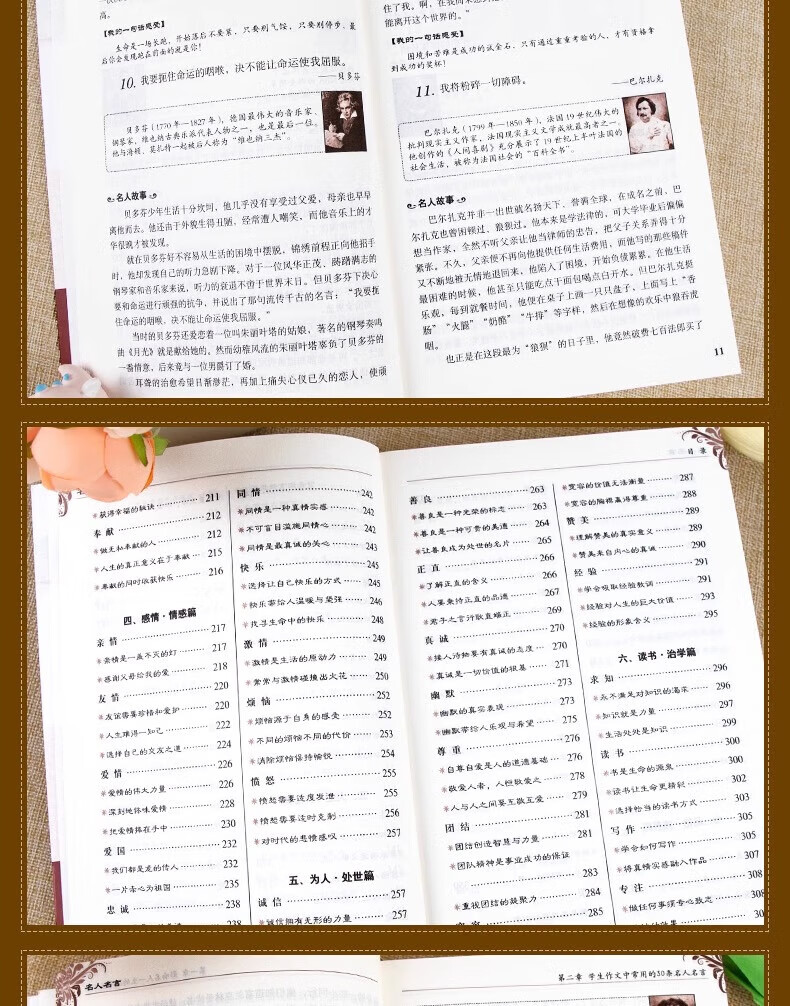 高。
【我的一句话感受】
生命是一场长跑，开始落后不要紧，只要别气馁，只要别停步，最
后你会发现抢在前面的就是你！
10. 我要扼住命运的咽喉，决不能让命运使我屈服。
——贝多芬
贝多芬（1770 年—1827 年），德国最伟大的音乐家、
钢琴家，维也纳古典乐派代表人物之一，也是最后一位。
他与海顿、莫扎特一起被后人称为“维也纳三杰”。
名人故事
贝多芬少年生活十分坎坷，他几乎没有享受过父爱，母亲也早早
离他而去。他还由于外貌生得丑陋，经常遭人嘲笑，而他音乐上的才
华很晚才被发现。
就在贝多芬好不容易从生活的困境中摆脱，锦绣前程正向他招手
时，他却发现自己的听力急剧下降。对于一位风华正茂、踌躇满志的
钢琴家和音乐家来说，听力的衰退不啻于世界末日。但贝多芬下决心
要和命运进行顽强的抗争，并说出了那句流传千古的名言：“我要扼
住命运的咽喉，决不能让命运使我屈服。”
当时的贝多芬还爱恋着一位叫朱丽叶塔的姑娘，著名的钢琴奏鸣
曲《月光》就是献给她的。然而幼稚风流的朱丽叶塔辜负了贝多芬的
一番情意，后来竟与一位男爵订了婚。
耳聋的治愈希望日渐渺茫，再加上痛失心仪已久的恋人，使顽
能离开这个世界的。”
【我的一句话感受】
困境和苦难是成功的试金石。只有通过重重考验的人，才有资格拿
到成功的奖杯！
11. 我将粉碎一切障碍。
——巴尔扎克
巴尔扎克（1799 年—1850 年），法国19世纪伟大的
批判现实主义作家，法国现实主义文学成就最高者之一。
他创作的《人间喜剧》充分展示了19世纪上半叶法国的
社会生活，被称为法国社会的“百科全书”。
名人故事
巴尔扎克并非一出世就名扬天下、誉满全球，在成名之前，巴
尔扎克也曾困顿过、狼狈过。他本来是学法律的，可大学毕业后偏偏
想当作家，全然不听父亲让他当律师的忠告，把父子关系弄得十分
紧张。不久，父亲便不再向他提供任何生活费用，而他写的那些稿件
又不断地被无情地退回来，他陷入了困境，开始负债累累。在他生活
最困难的时候，他甚至只能吃点干面包喝点白开水。但巴尔扎克挺
乐观，每到就餐时间，他便在桌子上画一只只盘子，上面写上“香
肠”“火腿”“奶酪”“牛排”等字样，然后在想像的欢乐中狼吞虎
咽。
也正是在这段最为“狼狈”的日子里，他竟然破费七百法郎买了
11
获得幸福的秘诀 211
奉献 212
做无私奉献的人 212
人生的真正意义在于奉献 215
奉献的同时收获快乐 216
四、感情·情感篇
亲情 217
亲情是一盏不灭的灯 217
感谢父母给我的爱 218
友情 220
友谊需要珍惜和爱护 220
人生难得一知己 222
选择自己的交友之道 224
爱情 226
爱情的伟大力量 226
深刻地体味爱情 228
把爱情抓在手中 230
爱国 232
我们都是龙的传人 232
一片赤心为祖国 235
忠诚 238
238
同情 242
同情是一种真情实感 242
不可盲目滥施同情心 242
同情是最真诚的关心 243
快乐 245
选择让自己快乐的方式 245
快乐带给人温暖与坚强 246
找寻生命中的快乐 248
激情 249
激情是生活的原动力 249
常常与激情碰撞出火花 250
烦恼 252
烦恼源于自身的感受 252
不同的烦恼不同的代价 253
消除烦恼保持愉悦 254
愤怒 255
愤怒需要适度发泄 255
愤怒需要适时克制 256
对时代的悲愤感叹 257
五、为人·处世篇
诚信 257
诚信拥有无形的力量 257
目录
善良 263
善良是一种光荣的标志 263
善良是一种可贵的美德 264
让善良成为处世的名片 265
正直 266
了解正直的含义 266
人要秉持正直的品德 267
君子之言行耿直端正 269
真诚 270
矮人诗时要有真诚的态度 270
真诚是一切价值的根基 271
幽默 273
幽默的真实表现 273
幽默带给人乐观与希望 275
尊重 276
自尊自爱是人的道德基础 276
敬爱人者，人恒敬爱之 278
人与人之间要互敬互爱 279
团结 281
团结创造智慧与力量 281
团队精神是事业成功的保证
283
重视团结的凝聚力 284
285
宽容的价值无法衡量 287
宽容的胸襟赢得尊重 288
赞美 289
理解赞美的真实意义 289
赞美来自内心的真诚 290
经验 291
学会吸取经验教训 291
经验对人生的巨大价值 293
经验的形象含义 295
六、读书·治学篇
求知 296
永不满足对知识的渴求 296
知识就是力量 297
生活处处是知识 299
读书 300
书是生命的源泉 300
读书让生命更精彩 302
选择恰当的读书方式 303
写作 305
学会如何写作 305
将真情实感融入作品 307
专注 308
做任何事须专心致志 308
名人名言
第二章 学生作文中常用的30条名人名言